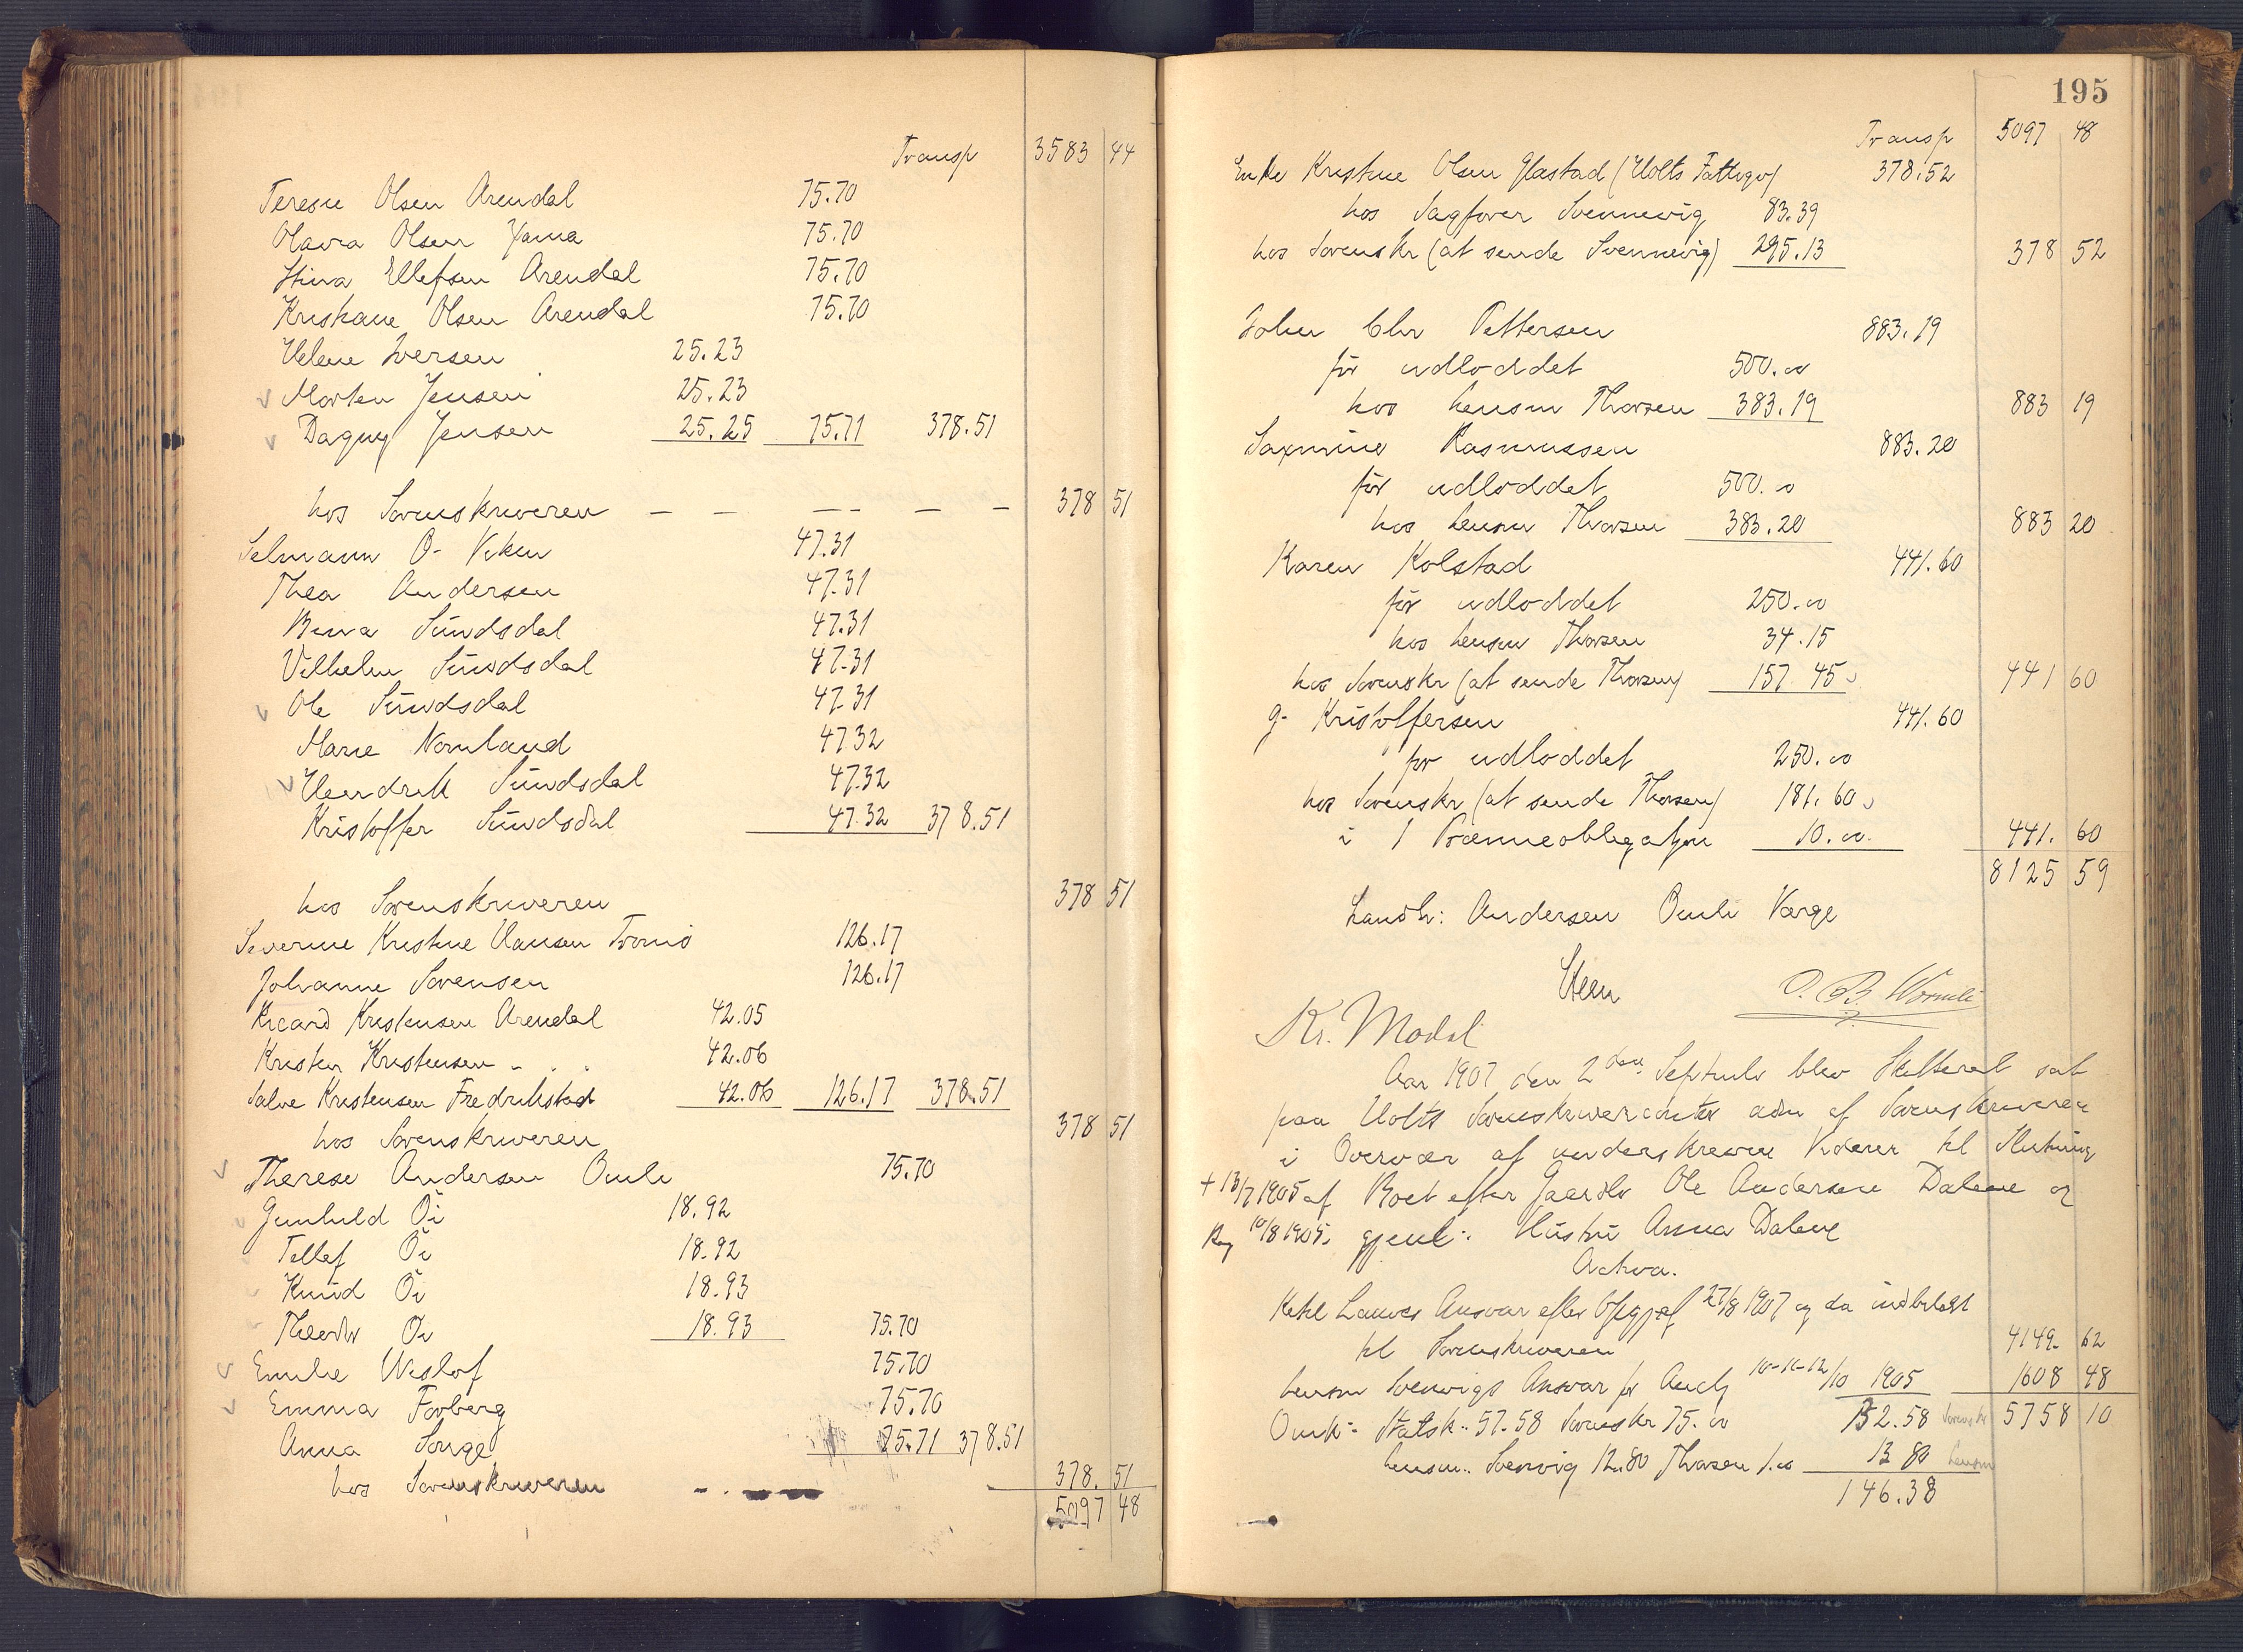 Transp 3583 44
Terese Olsen Arendal 75.70
Olava Olsen 75.70
Stina Ellefsen Arendal 75.70
Kristiane Olsen Arendal 75.70
Helene Iversen 25.23
Morten Jensen 25.23
Dagny Jensen 25.25 75.71 378.51
hos Sorenskriveren — — — — — — 378 51
Selmann O. Viken 47.31
Thea Andersen 47.31
Sundsdal 47.31
Vilhelm Sundsdal 47.31
Ole Sundsdal 47.31
Marie Nornland 47 32
Hendrik Sundsdal 47.32
Kristoffer Sundsdal 47.32 378.51
hos Sorenskriveren 378 51
Severine Kristine Hansen Tromö 126.17
Johanne Sørensen 126.17
Ricard Kristensen Arendal 42.05
Kristen Kristensen " . . 42.06
Salve Kristensen Fredrikstad 42.06 126.17 378.51
hos Sorenskriveren 378 51
Therese Andersen Omli 75.70
Gunhild Öi 18.92
Tellef Öi 18.92
Knud Öi 18.93
Öi 18.93 75.70
Emilie 75.70
Emma Forberg 75.70
Anna Songe 75.71 378.51
hos Sorenskriveren 378. 51
5097 48
195
Transp 5097 48
Enke Kristine Olsen Glastad (Holts Fattigv) 378.52
hos Sagfører Svennevig 83.39
hos Sorenskr (at sende Svennevig) 295.13 378 52
John Chr Pettersen 883.19
før udloddet 500.00
hos lensm Thorsen 383.19 883 19
Saxmine Rasmussen 883.20
før udloddet 500.00
hos lensm Thorsen 383.20 883 20
Karen Kolstad 441.60
før udloddet 250.00
hos lensm Thorsen 34.15
hos Sorenskr (at sende Thorsen) 157 45 441 60
G. Kristoffersen 441.60
før udloddet 250.00
hos Sorenskr (at sende Thorsen) 181.60
i 1 Præmieobligation 10.00. 441. 60
8125 59
Landh: Andersen Omli Værge
Steen O. B. Wormli
Kr. Modal
Aar 1907 den 2den Septmbr blev Skifteret sat
paa Holts Sorenskriverembede adm af Sorenskriveren
i Overvær af underskrevne Vidner til Slutning
+ 13/7 1905 af Boet efter Gaardbr Ole Andersen Dalene og
Reg 10/8 1905. gjenl: Hustru Anna Dalene
Activa.
Ketil Lauves Ansvar efter Opgjør 27/8 1907 og da indbetalt
til Sorenskriveren 4149. 62
lensm Svenvigs Ansvar for Auctj 10-11-12/10 1905 1608 48
Omk: Statsk: 57.58 Sorenskr 75.00 132.58 Sorenskr 5758 10
lensm: Svenvig 12.80 Thorsen 1.00 13 80 lensm
146.38